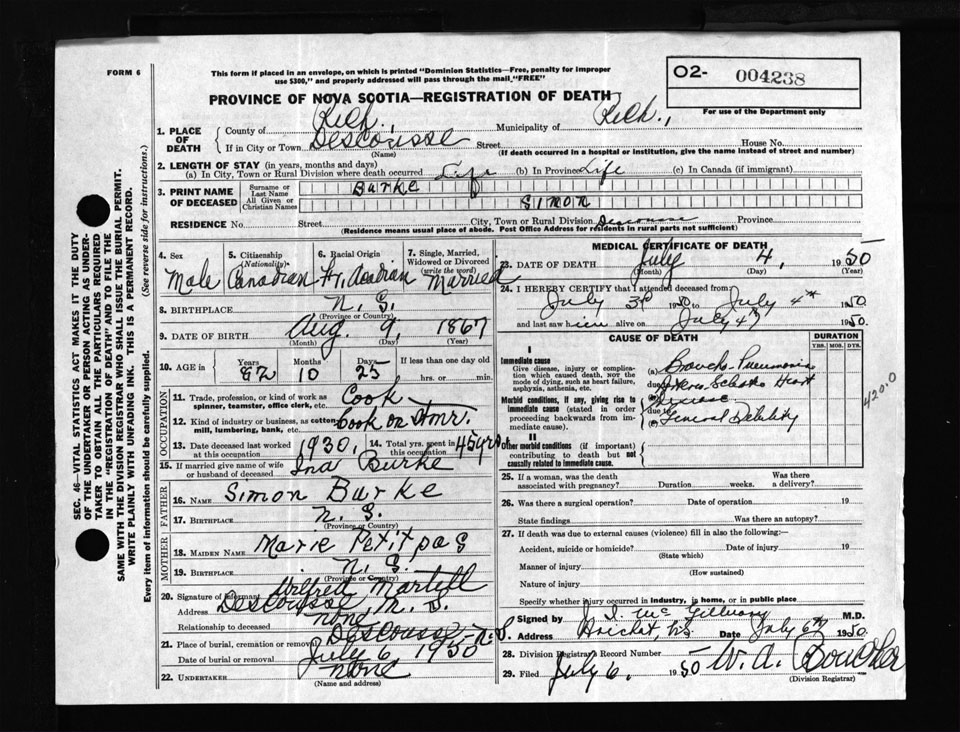 FORM 6
This form if placed in an envelope, on which is printed "Dominion Statistics—Free, penalty for improper
use $300," and properly addressed will pass through the mail "FREE"
O2- 004238
For use of the Department only
PROVINCE OF NOVA SCOTIA—REGISTRATION OF DEATH
1. PLACE OF DEATH
County of Rich., Municipality of Rich.,
If in City or Town Descousse Street House No.
(Name) (If death occurred in a hospital or institution, give the name instead of street and number)
2. LENGTH OF STAY (in years, months and days)
(a) In City, Town or Rural Division where death occurred Life (b) In Province Life (c) In Canada (if immigrant)
3. PRINT NAME OF DECEASED
Surname or Last Name Burke
All Given or Christian Names Simon
RESIDENCE No. Street City, Town or Rural Division Descousse Province
(Residence means usual place of abode. Post Office Address for residents in rural parts not sufficient)
4. Sex Male
5. Citizenship (Nationality) Canadian
6. Racial Origin Fr. Acadian
7. Single, Married, Widowed or Divorced (write the word) Married
8. BIRTHPLACE N. S.
(Province or Country)
9. DATE OF BIRTH Aug. 9, 1867
(Month) (Day) (Year)
10. AGE in Years 82 Months 10 Days 25 If less than one day old
hrs. or min.
OCCUPATION
11. Trade, profession, or kind of work as spinner, teamster, office clerk, etc. Cook
12. Kind of industry or business, as cotton-mill, lumbering, bank, etc. Cook on Stmr.
13. Date deceased last worked at this occupation 1930, 14. Total yrs. spent in this occupation 45 yrs.
15. If married give name of wife or husband of deceased Ina Burke
FATHER
16. NAME Simon Burke
17. BIRTHPLACE N. S.
(Province or Country)
MOTHER
18. MAIDEN NAME Marie Petitpas
19. BIRTHPLACE N. S.
(Province or Country)
20. Signature of informant Wilfred Martell
Address Descousse, N. S.
Relationship to deceased none
21. Place of burial, cremation or removal Descousse, N.S.
Date of burial or removal July 6, 1950
22. UNDERTAKER none
(Name and address)
MEDICAL CERTIFICATE OF DEATH
23. DATE OF DEATH July 4, 1950
(Month) (Day) (Year)
24. I HEREBY CERTIFY that I attended deceased from
July 3rd 1950 to July 4th 1950
and last saw him alive on July 4th 1950.
CAUSE OF DEATH
DURATION
YRS. MOS. DYS.
I
Immediate cause
Give disease, injury or complication which caused death, not the mode of dying, such as heart failure, asphyxia, asthenia, etc.
(a) Broncho Pneumonia
due to
Morbid conditions, if any, giving rise to immediate cause (stated in order proceeding backwards from immediate cause).
(b) Heart Disease
due to
(c) General Debility
420.0
II
Other morbid conditions (if important) contributing to death but not causally related to immediate cause.
25. If a woman, was the death associated with pregnancy? Duration weeks. Was there a delivery?
26. Was there a surgical operation? Date of operation 19
State findings Was there an autopsy?
27. If death was due to external causes (violence) fill in also the following:—
Accident, suicide or homicide? Date of injury 19
(State which)
Manner of injury
(How sustained)
Nature of injury
Specify whether injury occurred in industry, in home, or in public place
Signed by M.D.
Address Arichat, N.S. Date July 6th 1950.
28. Division Registrar's Record Number
29. Filed July 6, 1950 W. A. Boucher
(Division Registrar)
SEC. 46—VITAL STATISTICS ACT MAKES IT THE DUTY
OF THE UNDERTAKER OR PERSON ACTING AS UNDER-
TAKER TO OBTAIN ALL THE PARTICULARS REQUIRED
IN THE "REGISTRATION OF DEATH" AND TO FILE THE
SAME WITH THE DIVISION REGISTRAR WHO SHALL ISSUE THE BURIAL PERMIT.
WRITE PLAINLY WITH UNFADING INK. THIS IS A PERMANENT RECORD.
Every item of information should be carefully supplied. (See reverse side for instructions.)